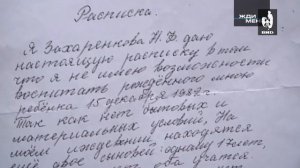 ЖДИ
МЕНЯ
ВИD
Расписка.
Я Захаренкова Н. В даю
настоящую расписку в том
что я не имею возможности
воспитать рождённого мною
ребёнка 15 декабря 1982 г.
Так как нет бытовых и
материальных условий, На
моём иждивении находятся
ещё двое сыновей одному 17 лет,
оба учатся.